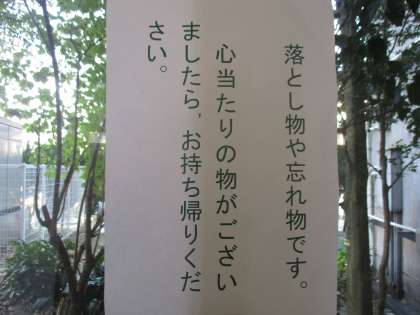 落とし物や忘れ物です。
心当たりの物がござい
ましたら，お持ち帰りくだ
さい。